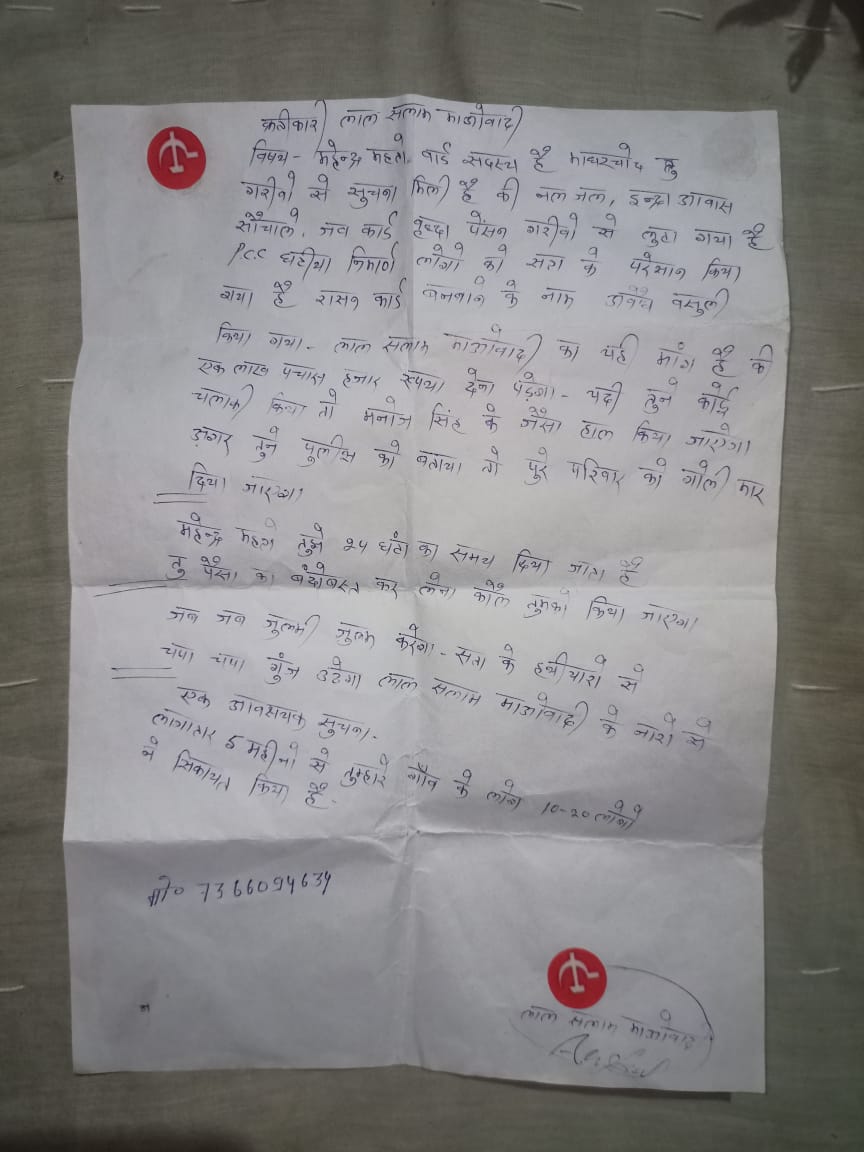 क्रांतीकारी लाल सलाम माओवादी
विषय- महेन्द्र महतो वार्ड सदस्य है माधरचोद तु
गरीवो से सुचना मिली है की नल जल, इन्द्रा आवास
सौचाले, जव कार्ड वृध्दा पेंसन गरीवो से लुटा गया है
P.C.C घटीया निमार्ण लोगो को सता के परेसान किया
गया है रासन कार्ड बनवाने के नाम अवैध वसुली
किया गया- लाल सलाम माओवादी का यही मांग है की
एक लाख पचास हजार रूपया देना पड़ेगा- यदी तुने कोई
चलाकी किया तो मनोज सिंह के जैसा हाल किया जाएगा
अगर तुने पुलीस को बताया तो पुरे परिवार को गोली मार
दिया जाएगा
महेन्द्र महतो तुझे 24 घंटा का समय दिया जाता है
तु पैसा का बंदोबस्त कर लेना कॉल तुमको किया जाएगा
जब जब जुलमी जुलम करेगा- सता के हथीयारो से
चपा चपा गुंज उठेगा लाल सलाम माओवादी के नारो से
एक आवसयक सुचना-
लागातार 5 महीनो से तुम्हारे गाँव के लोग 10-20 लोगो
ने सिकायत किया है-
मो० 7366094634
लाल सलाम माओवादी